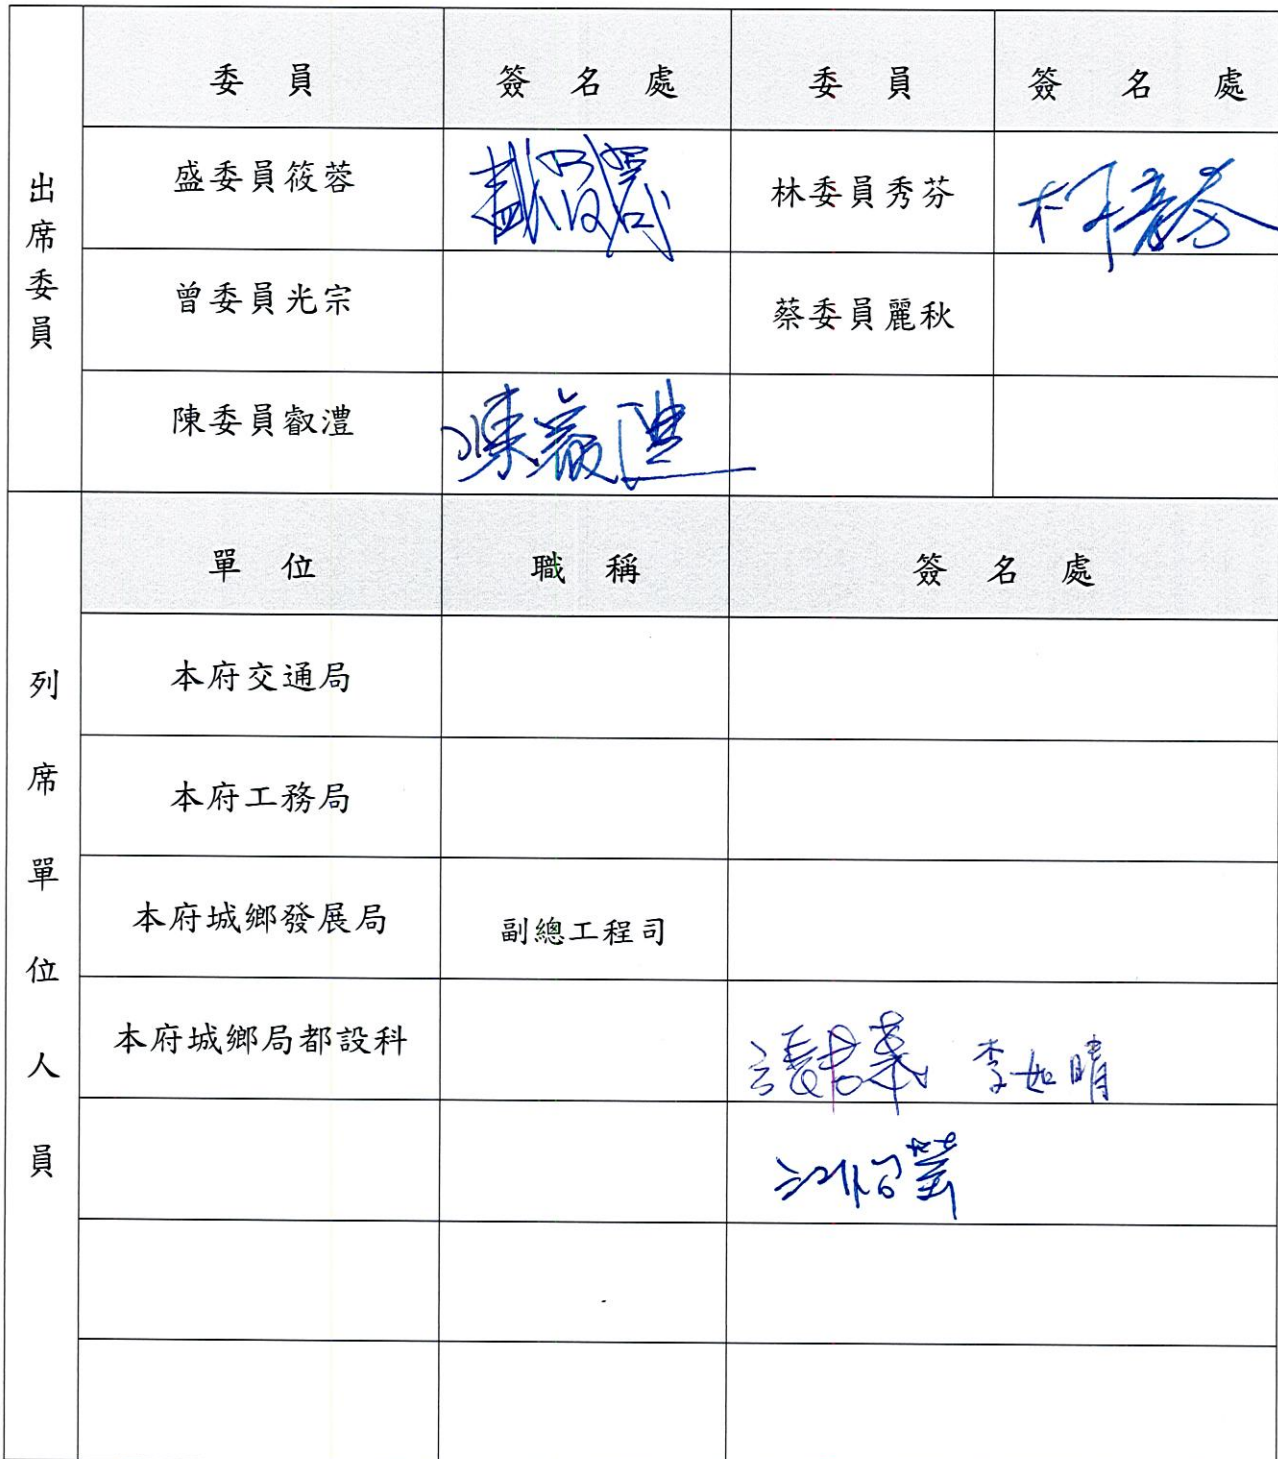 出席委員
委員 簽名處 委員 簽名處
盛委員筱蓉 盛筱蓉 林委員秀芬 林秀芬
曾委員光宗 蔡委員麗秋
陳委員叡澧 陳叡澧
列席單位人員
單位 職稱 簽名處
本府交通局
本府工務局
本府城鄉發展局 副總工程司
本府城鄉局都設科 李如晴